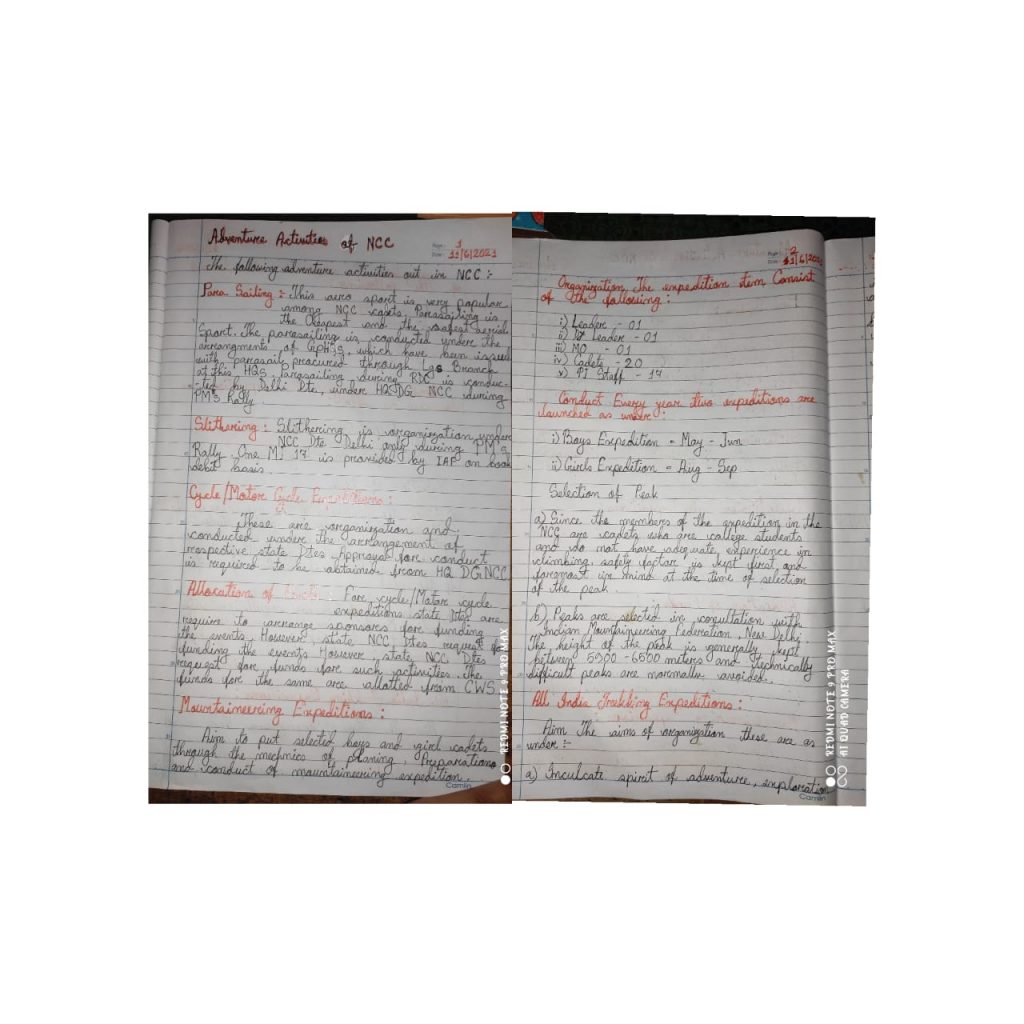 Adventure Activities of NCC
Page: 1
Date: 11/6/2021
The following adventure activities out in NCC :-
Para Sailing :- This aero sport is very popular
among NCC cadets. Parasailing is
the Cheapest and the safest aerial
Sport. The parasailing is conducted under the
arrangments of GpHQs, which have been issued
with parasail procured through Lgs Branch
at this HQs, parasailing during RDC is conduc-
-ted by Delhi Dte, under HQ DG NCC during
PM's Rally
Slithering : Slithering is organization under
NCC Dte Delhi only during PM's
Rally. One MI 17 is provided by IAF on book
debit basis.
Cycle/Motor Cycle Expeditions :
These are organization and
conducted under the arrangement of
respective state Dtes Approval for conduct
is required to be obtained from HQ DG NCC
Allocation of : For cycle/Motor cycle
expeditions state Dtes are
require to arrange sponsores for funding
the events. However, state NCC Dtes request for
funding the events However, state NCC Dtes
request for funds for such activities. The
funds for the same are allotted from CWS
Mountaineering Expeditions :
Aim to put selected boys and girl cadets
through the mechnics of planing, Preparations
and conduct of mountaineering expedition.
Camlin
REDMI NOTE 9 PRO MAX
Page: 2
Date: 11/6/2021
Organization The expedition Consist
of the following :
i) Leader - 01
ii) Leader - 01
iii) MO - 01
iv) Cadets - 20
v) PI Staff - 17
Conduct Every year two expeditions are
launched as under:
i) Boys Expedition = May - Jun
ii) Girls Expedition = Aug - Sep
Selection of Peak
a) Since the members of the expedition in the
NCC are cadets who are college students
and do not have adequate experience in
climbing, safety factor is kept first and
foremost in mind at the time of selection
of the peak.
b) Peaks are selected in consultation with
Indian Mountaineering Federation, New Delhi.
The height of the peak is generally kept
between 5900 - 6500 meters and technically
difficult peaks are normally avoided.
All India Trekking Expeditions :
Aim The aims of organization these are as
under :-
a) Inculcate spirit of adventure, exploration
Camlin
REDMI NOTE 9 PRO MAX
AI QUAD CAMERA